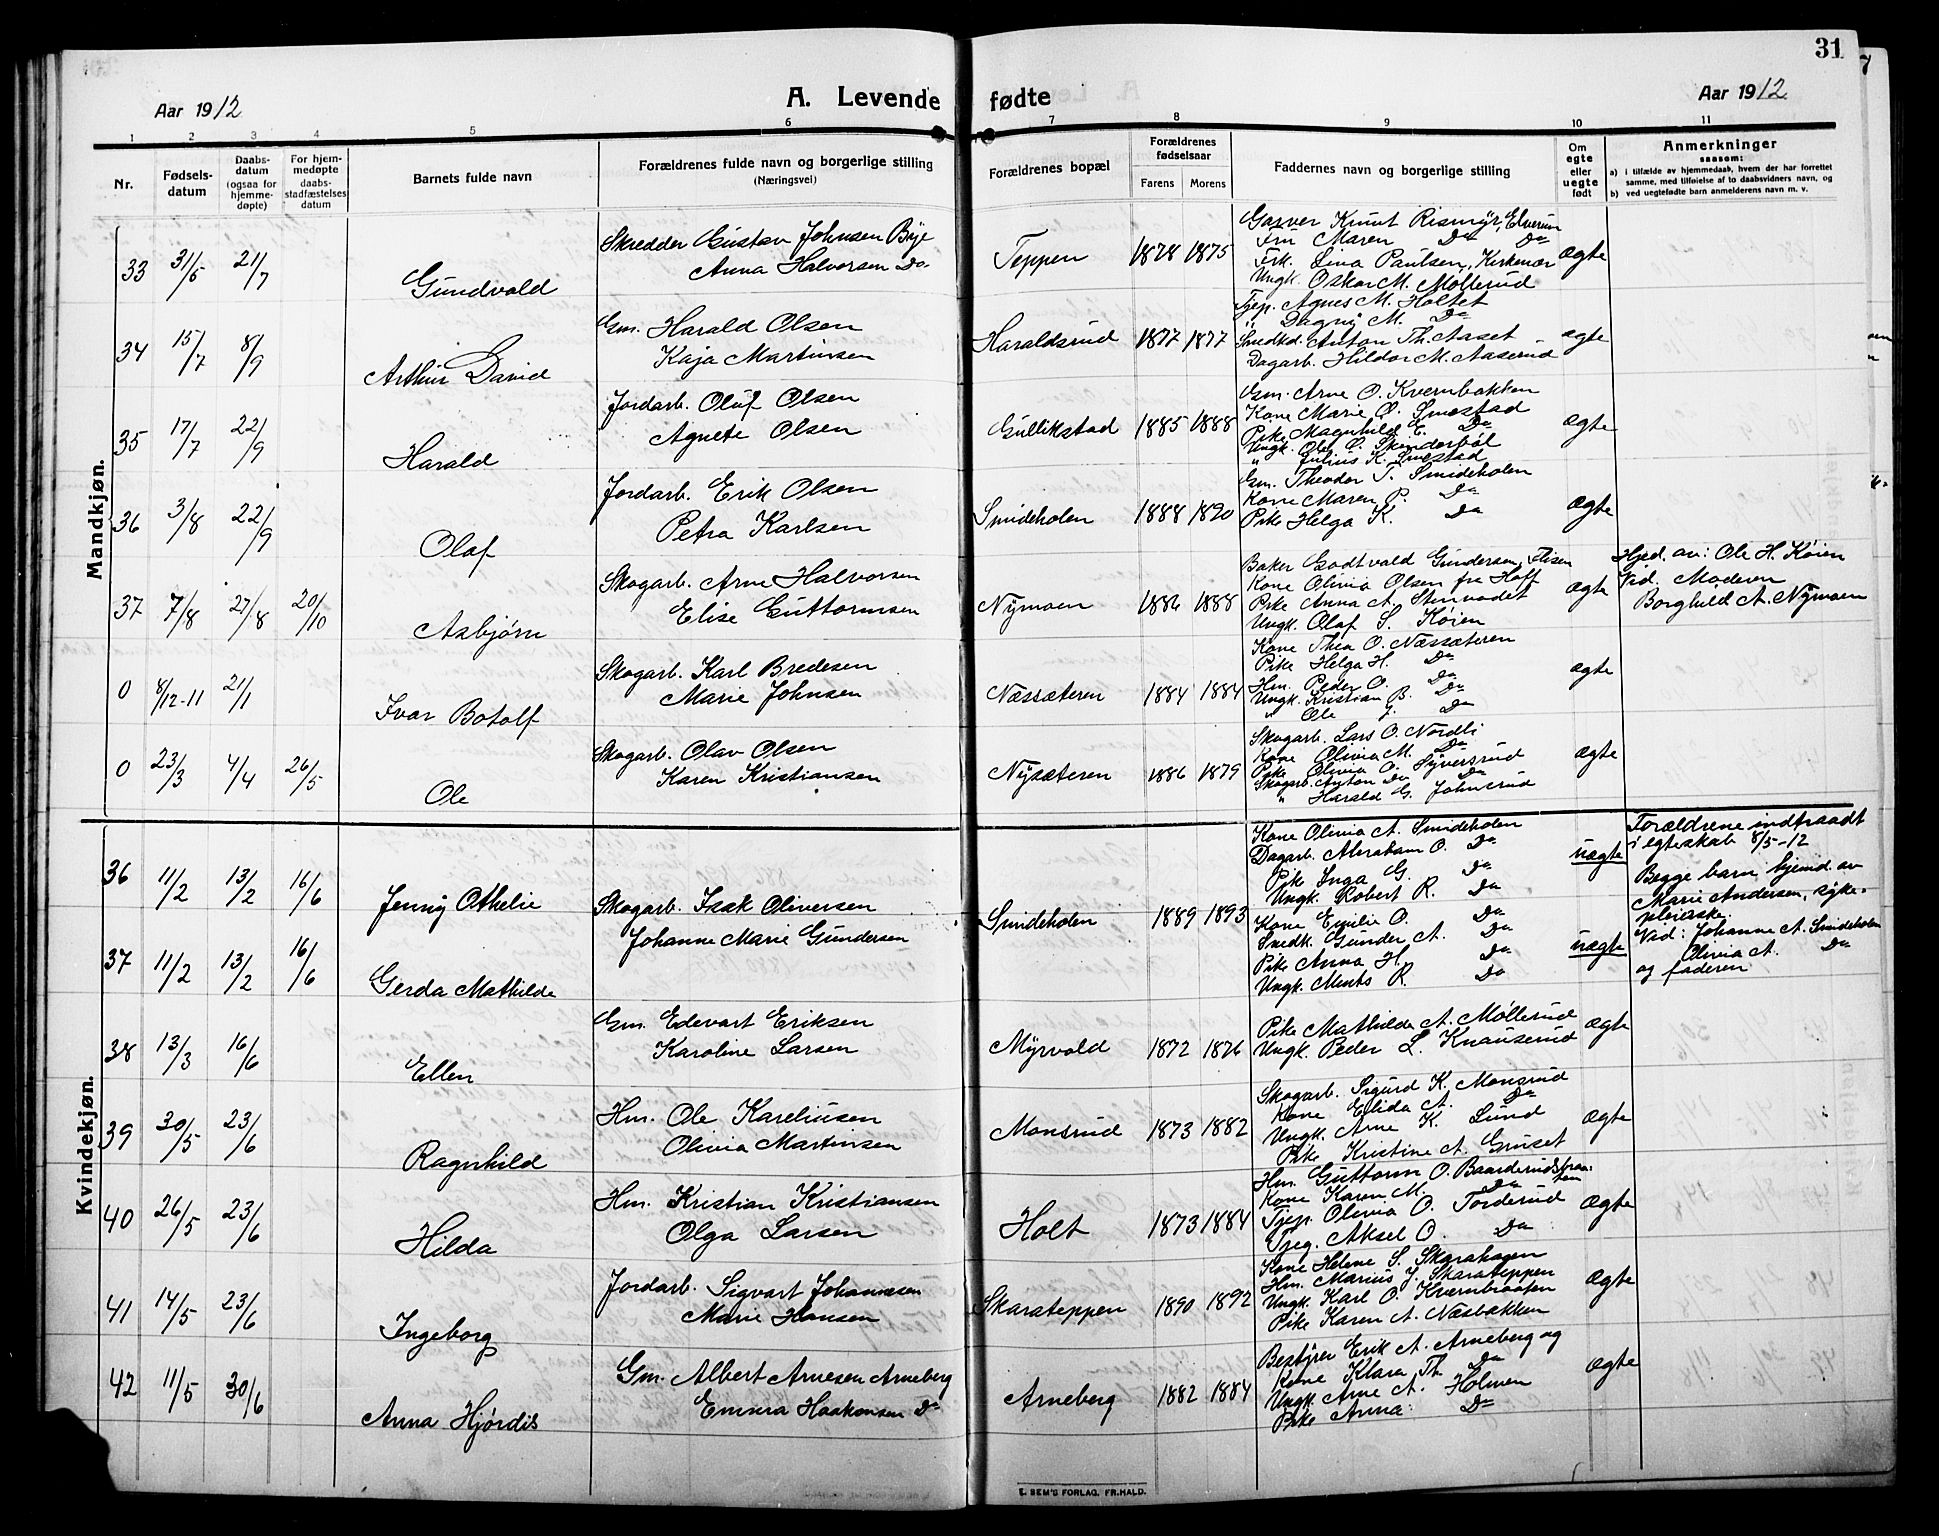 31
Aar 1912
A. Levende fødte
Aar 1912
1 2 3 4 5 6 7 8 9 10 11
Nr.
Fødsels-
datum
Daabs-
datum
(ogsaa for
hjemme-
døpte)
For hjem-
medøpte
daabs-
stadfæstelses
datum
Barnets fulde navn
Forældrenes fulde navn og borgerlige stilling
(Næringsvei)
Forældrenes bopæl
Forældrenes
fødselsaar
Farens Morens
Faddernes navn og borgerlige stilling
Om
egte
eller
uegte
født
Anmerkninger
saasom:
a) i tilfælde av hjemmedaab, hvem der har forrettet
samme, med tilføielse af to daabsvidners navn, og
b) ved uegtefødte barn anmelderens navn m. v.
Mandkjøn.
33 31/5 21/7 Gundvald
Skredder Gustav Johnsen Bye
Anna Halvorsen Do.
Teppen 1878 1875
Garver Knut Rismyr, Elverum
Fru Maren Do Do
Frk. Lina Paulsen, Kirkenær
Ungk. Oskar M. Møllerud
ægte
34 15/7 8/9 Arthur David
Gm. Harald Olsen
Kaja Martinsen
Haraldsrud 1877 1877
Tjep. Agnes M. Holtet
" Dagny M. Do
Smedkd. Anton Th. Aaset
Dagarb. Hildor M. Aaserud
ægte
35 17/7 22/9 Harald
Jordarb. Oluf Olsen
Agnete Olsen
Gullikstad 1885 1888
Gm. Arne O. Kvernbakken
Kone Marie O. Smestad
Pike Magnhild E. Do
Ungk. Ole O. Skinderbøl
" Julius K. Smestad
ægte
36 3/8 22/9 Olaf
Jordarb. Erik Olsen
Petra Karlsen
Smideholen 1888 1890
Gm. Theodor T. Smideholen
Kone Maren P. Do
Pike Helga K. Do
ægte
37 7/8 27/8 20/10 Asbjørn
Skogarb. Arne Halvorsen
Elise Guttormsen
Nymoen 1886 1888
Baker Godtvald Gundersen, Flisen
Kone Olivia Olsen fra Hoff
Pike Anna A. Stenvadet
Ungk. Olaf S. Køien
ægte
Hjed. av: Ole H. Køien
Vid. Moderen
Borghild A. Nymoen
0 8/12-11 21/1 Ivar Botolf
Skogarb. Karl Bredesen
Marie Johnsen
Næssæteren 1884 1884
Kone Thea O. Næssæteren
Pike Helga H. Do
Hm. Peder O. Do
Ungk. Kristian B. Do
" Ole J. Do
ægte
0 23/3 4/4 26/5 Ole
Skogarb. Olav Olsen
Karen Kristiansen
Nysæteren 1886 1879
Skogarb. Lars O. Nordli
Kone Olivia M. Do
Pike Olivia O. Syversrud
Skogarb. Anton Do Do
" Harald G. Johnsrud
ægte
Kvindekjøn.
36 11/2 13/2 16/6 Jenny Othelie
Skogarb. Isak Oliversen
Johanne Marie Gundersen
Smideholen 1889 1893
Kone Olivia A. Smideholen
Dagarb. Abraham O. Do
Pike Inga G. Do
Ungk. Robert R. Do
uægte
Forældrene indtraadt
i egteskab 8/5-12
Begge barn hjemd. av
Marie Andersen, syke-
pleierske.
Vid: Johanne A. Smideholen
Olivia A. Do
og faderen
37 11/2 13/2 16/6 Gerda Mathilde
Kone Emilie O. Do
Smedk. Gunder A. Do
Pike Anna H. Do
Ungk. Ments R. Do
uægte
38 13/3 16/6 Ellen
Gm. Edevart Eriksen
Karoline Larsen
Myrvold 1872 1876
Pike Mathilde A. Møllerud
Ungk. Peder L. Knauserud
ægte
39 30/5 23/6 Ragnhild
Hm. Ole Kareliusen
Olivia Martinsen
Monsrud 1873 1882
Skogarb. Sigurd K. Monsrud
Kone Elida A. Do
Ungk. Arne K. Lund
Pike Kristine A. Gruset
ægte
40 26/5 23/6 Hilda
Hm. Kristian Kristiansen
Olga Larsen
Holt 1873 1884
Hm. Guttorm O. Baarderudsbraa-
ten
Kone Karen M. Do
Tjep. Olivia O. Torderud
Tjeg. Aksel O. Do
ægte
41 14/5 23/6 Ingeborg
Jordarb. Sigvart Johannesen
Marie Hansen
Skarateppen 1890 1892
Kone Helene S. Skarahagen
Hm. Marius J. Skarateppen
Ungk. Karl O. Kvernbraaten
Pike Karen A. Næsbakken
ægte
42 11/5 30/6 Anna Hjørdis
Gm. Albert Arnesen Arneberg
Emma Haakonsen Do
Arneberg 1882 1884
Bestyrer Erik A. Arneberg og
Kone Klara Th. Do
Ungk. Arne A. Holmen
Pike Anna Do
ægte
E. SEM'S FORLAG, FR.HALD.